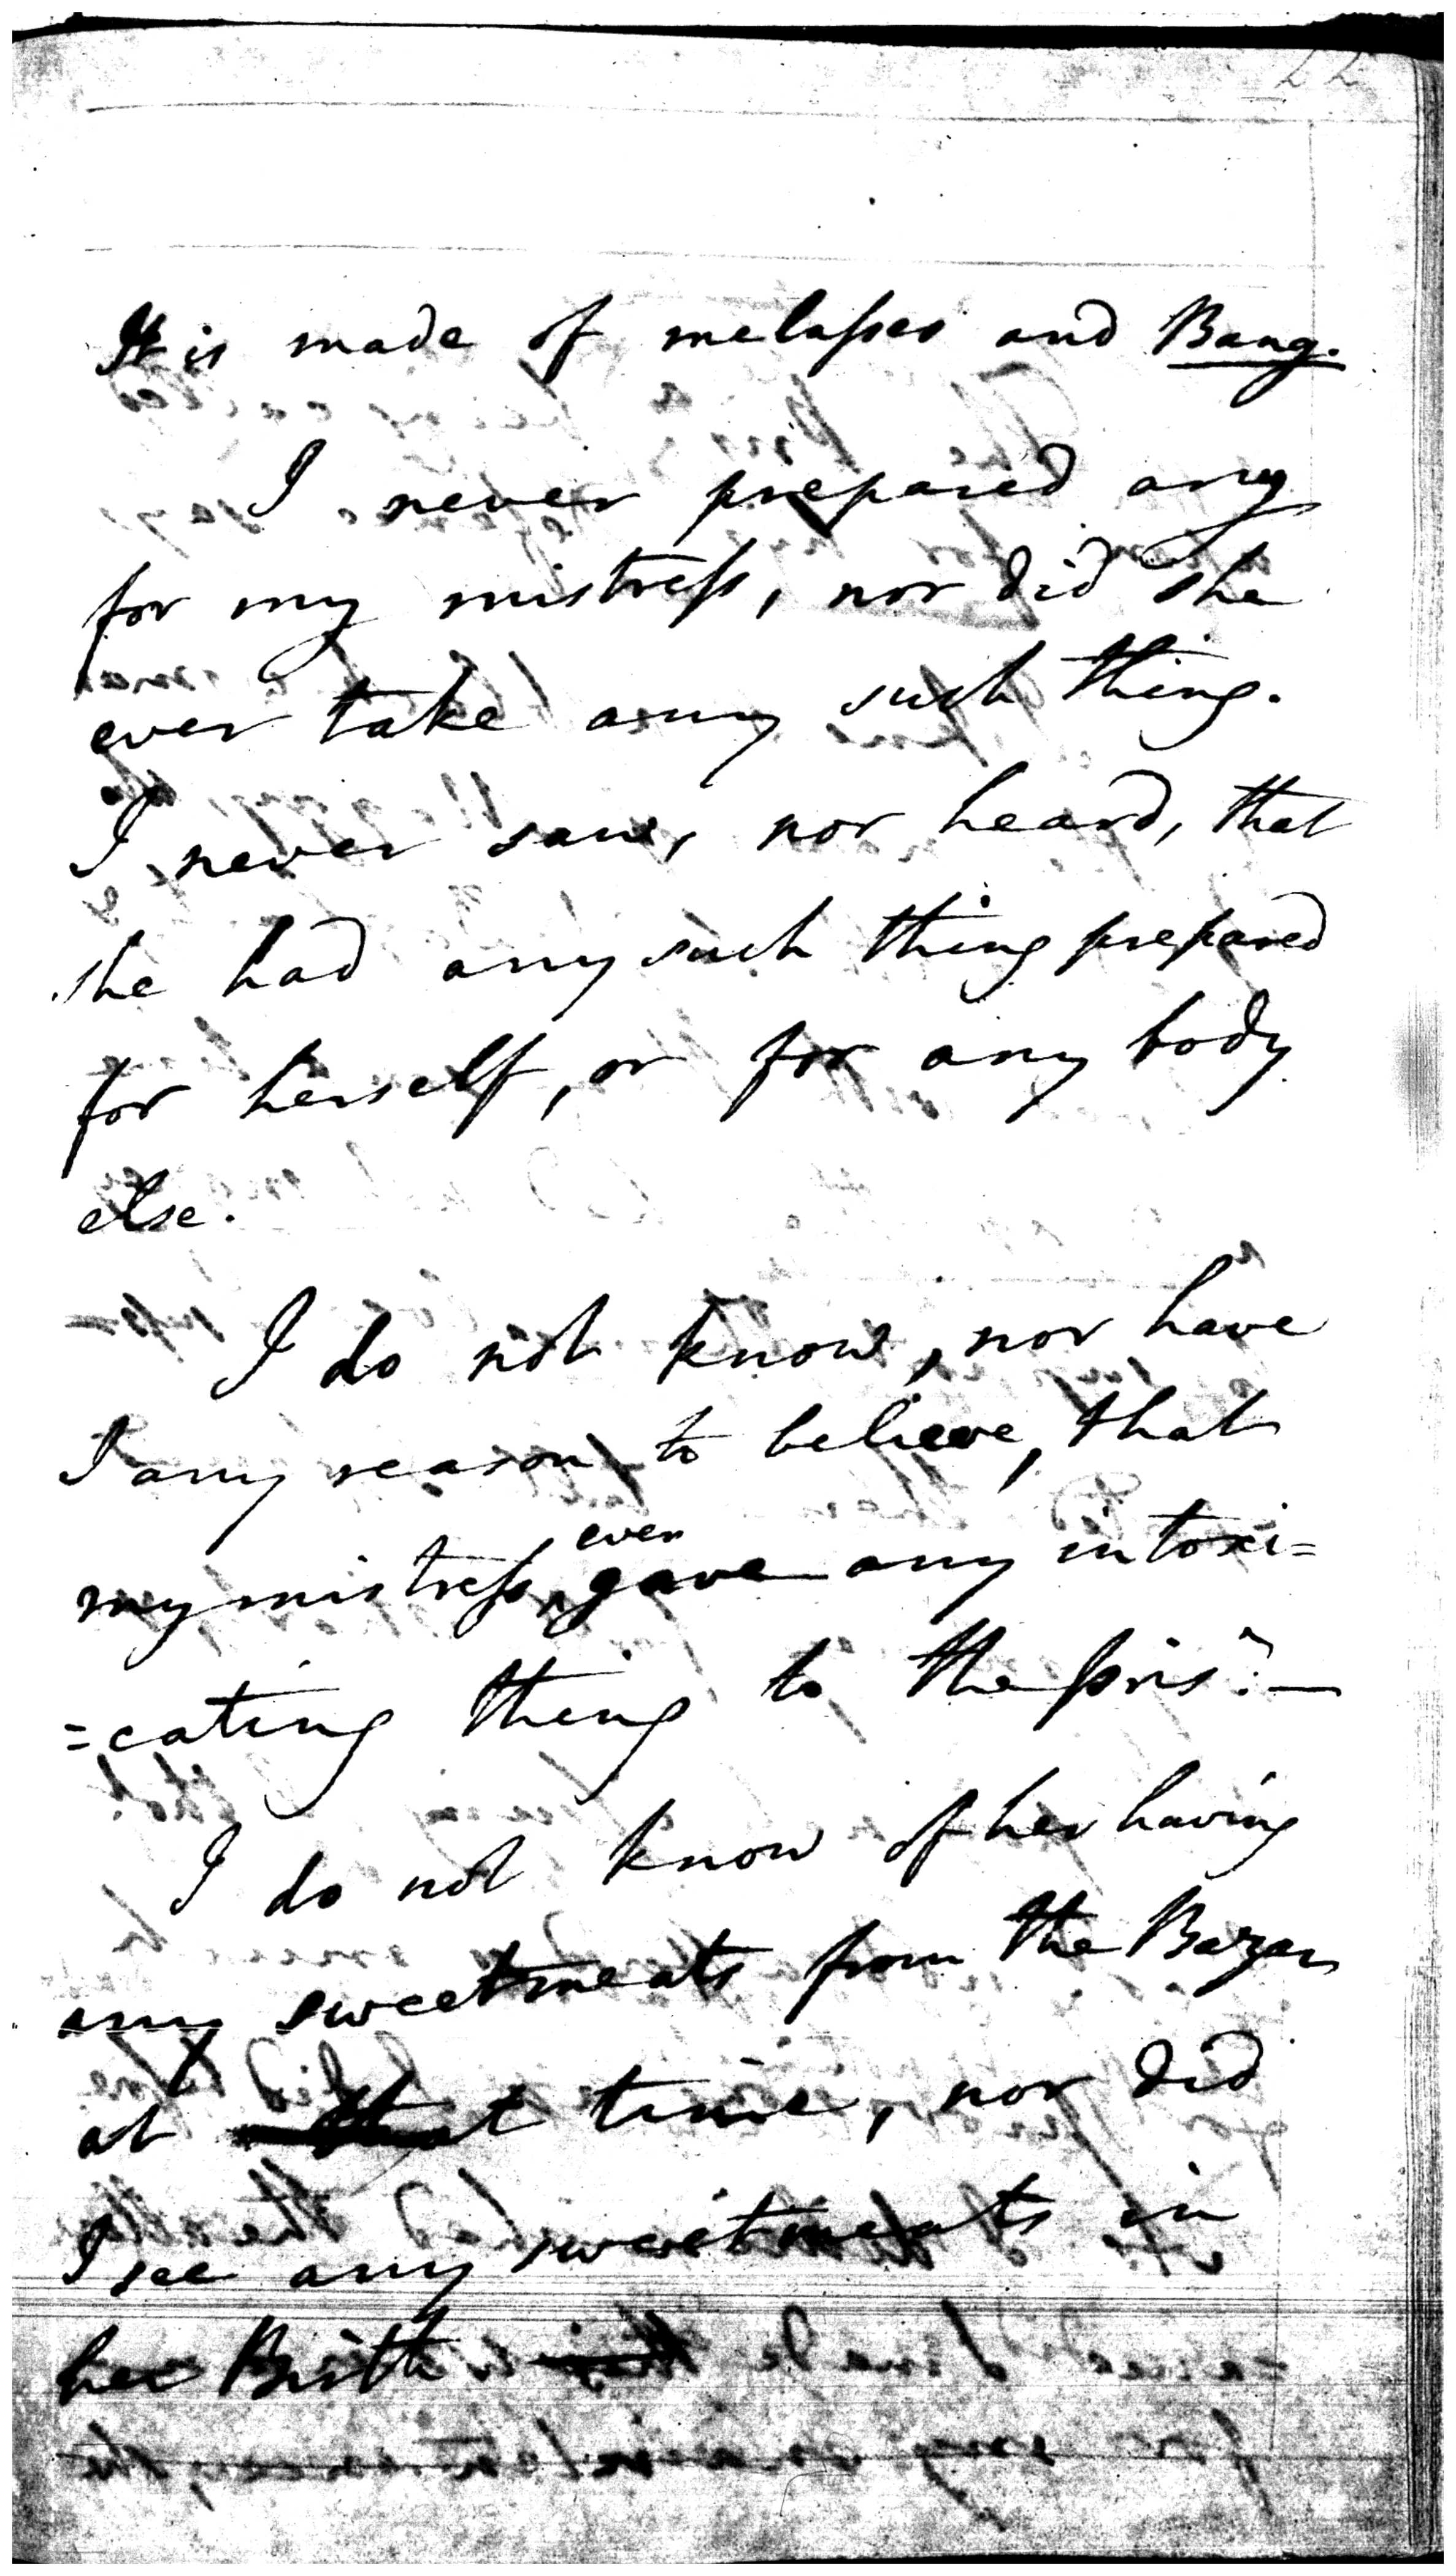 22
It is made of melasses and Bang.
I never prepared any
for my mistress, nor did she
ever take any such thing.
I never saw, nor heard, that
she had any such thing prepared
for herself, or for any body
else.
I do not know, nor have
I any reason to believe, that
my mistress, ever gave any intoxi=
=cating thing to the Prisr.—
I do not know of her having
any sweetmeats from the Bazar
at that time, nor did
I see any sweetmeats in
her Birth